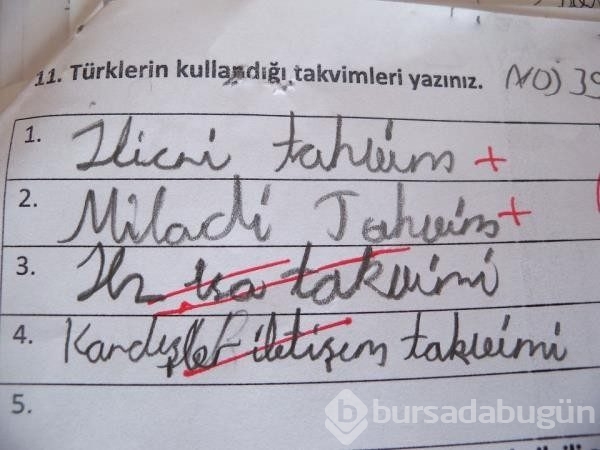 11. Türklerin kullandığı takvimleri yazınız. NO) 39
1. Hicri takvim +
2. Miladi Takvim +
3. Hz isa takvimi
4. Kardeşler iletişim takvimi
5.
bursadabugün